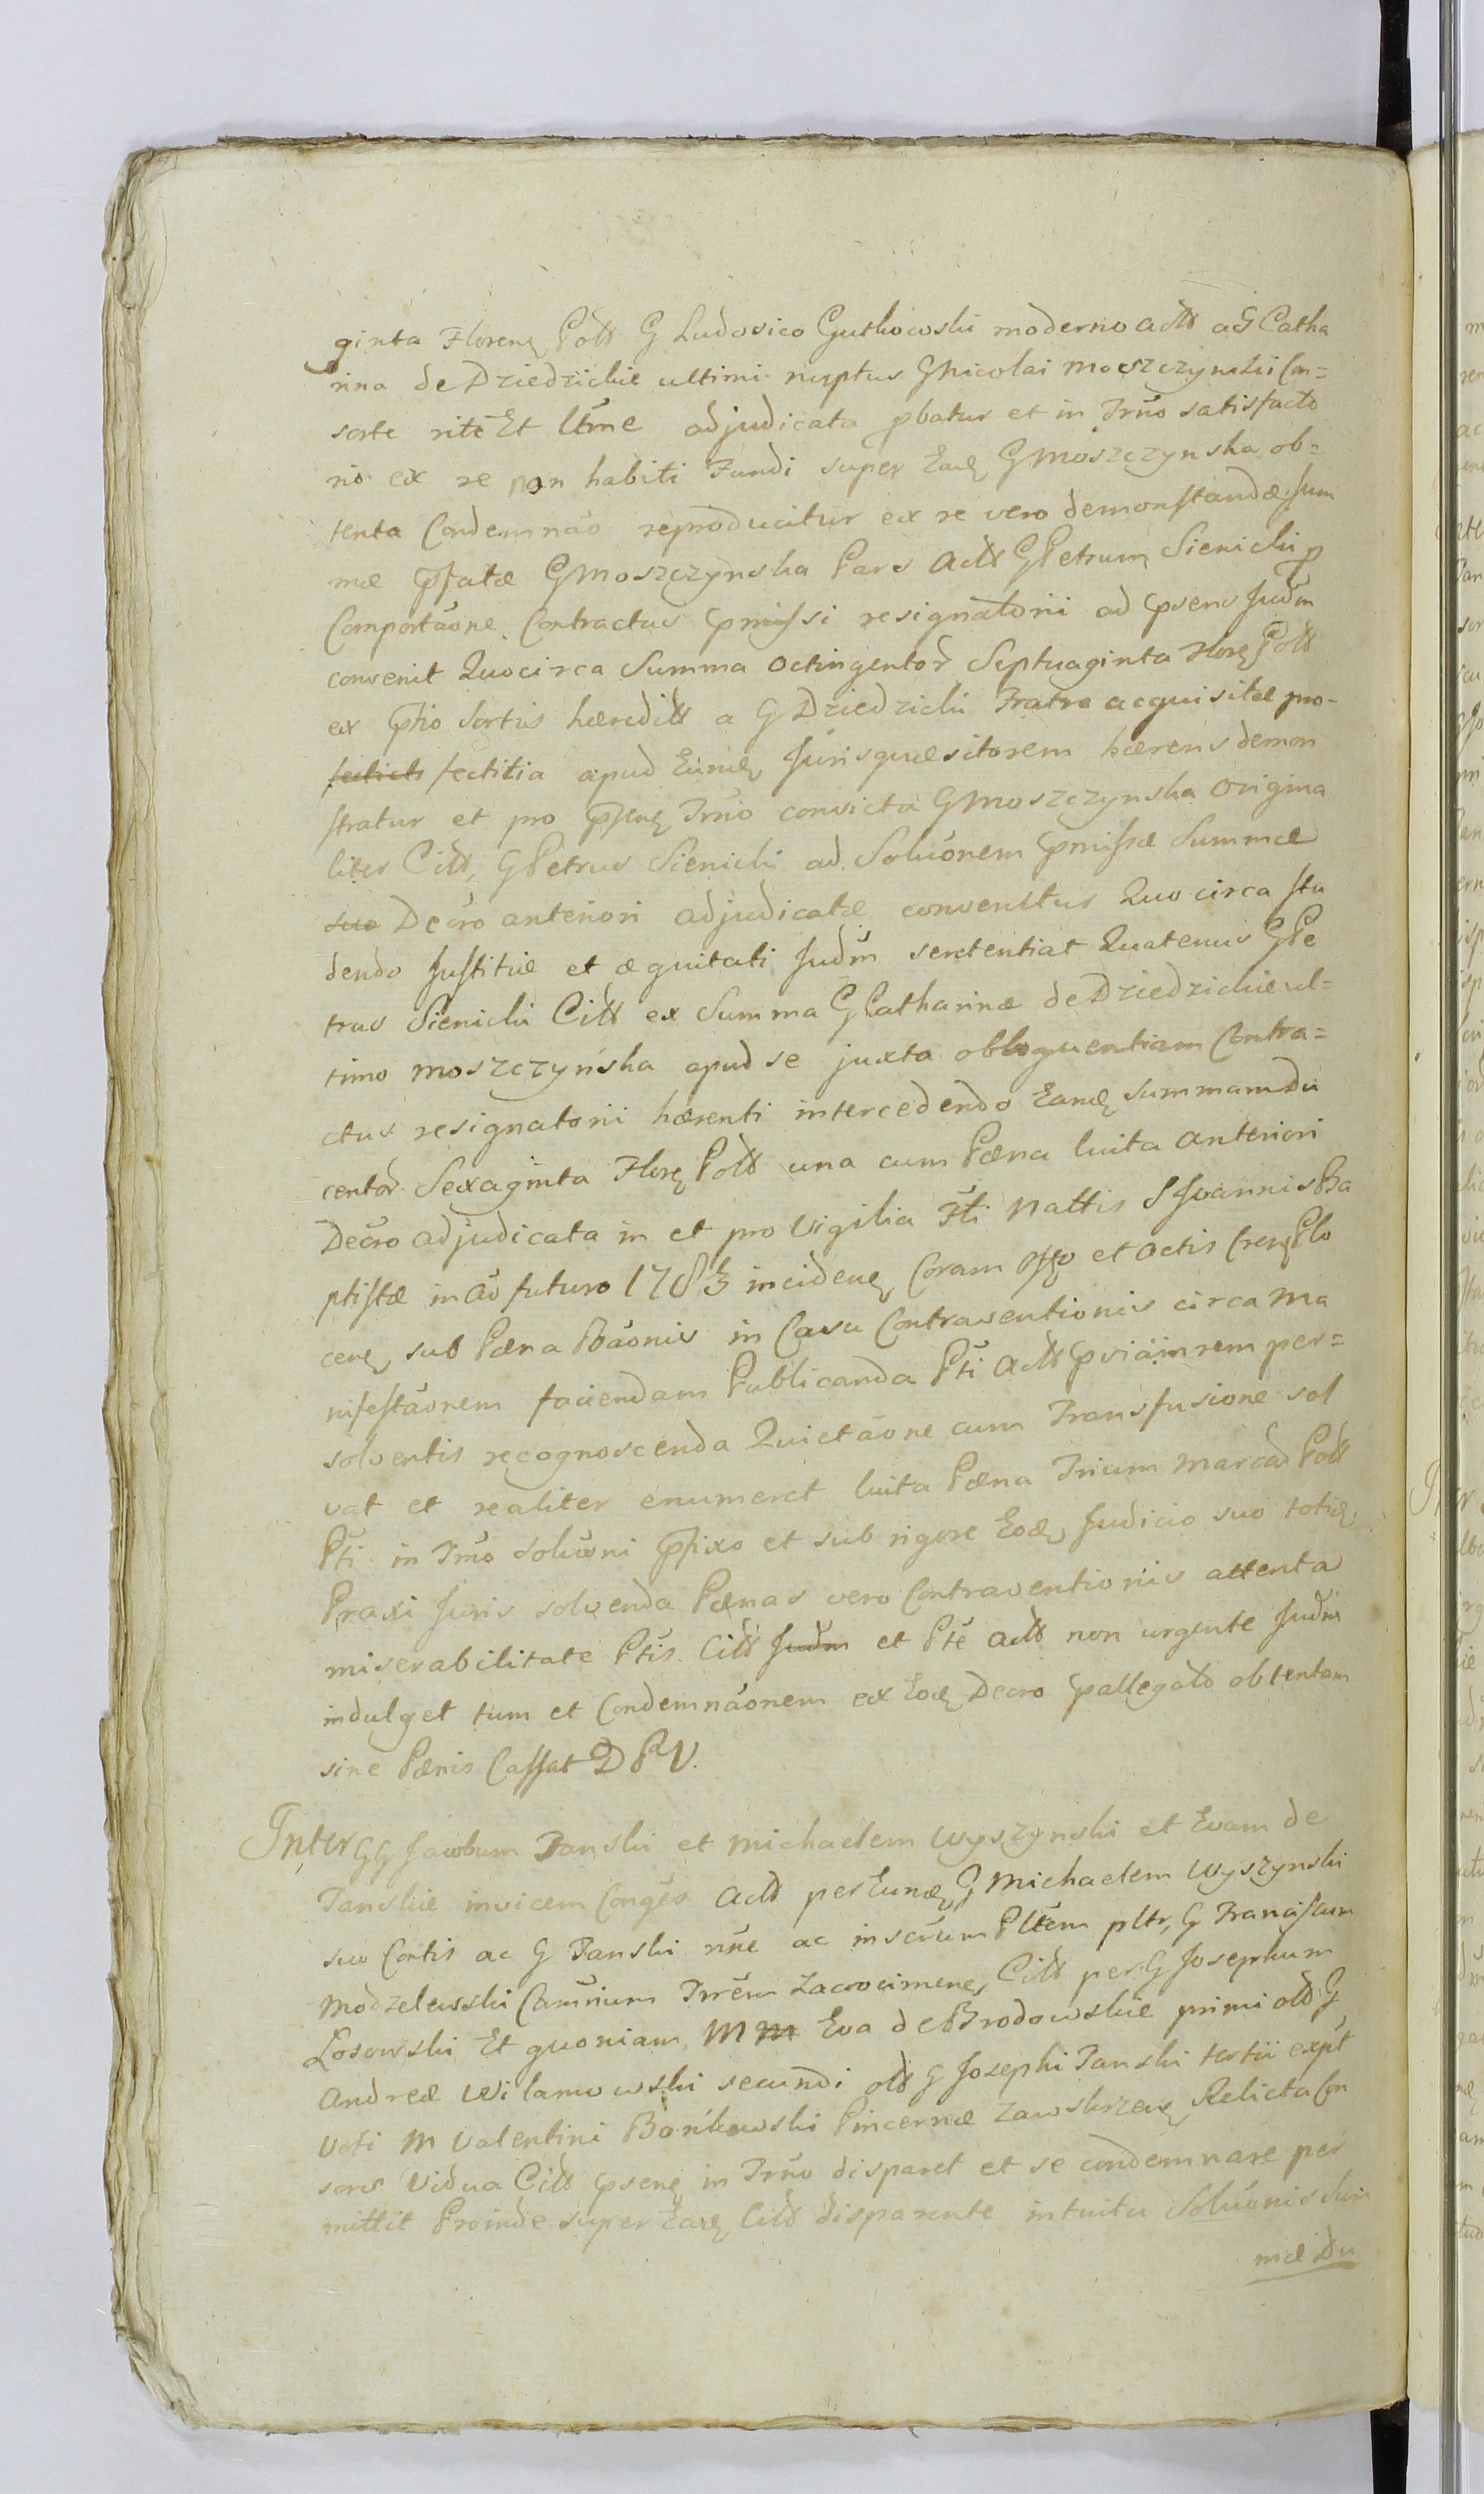 ginta Floren Poll G Ludovico Gutkowski moderno Actt a G Catha
rina de Dziedzickie ultimi nuptus G Nicolai Moszczynski Con=
sorte rite Et lttme adjudicata pbatur et in Trno satisfacto
rio ex re non habiti Fundi super Ead G Moszczynska ob=
tenta Condemnao reproducitur ex re vero demonstandæ Sum
mæ pfatæ G Moszczynska Pars Actt G Petrum Sienicki p
Comportaone Contractus pmissi resignatorii ad psens Judm
convenit Quocirca Summa Octingentor Septuaginta Flor Poll
ex ptio Sortis hæreditt a G Dziedzicki Fratre acquisitæ pro-
fectitia apud Eund Jurisquæsitorem hærens demon
stratur et pro psen Trno convicta G Moszczynska origina
liter Citt, G Petrus Sienicki ad Soluonem pmissæ Summæ
suo Decro anteriori adjudicatæ convenitur Quocirca stu
dendo Justitiæ et æquitati Judm sentetiat Quatenus G Pe
trus Sienicki Citt ex Summa G Catharinæ de Dziedzickie ul=
timo Moszczyńska apud se juxta obloquentiam Contra=
ctus resignatorii hærenti intercedendo Eand summam Du
centor Sexaginta Flor Poll una cum Pæna luita anteriori
Decro adjudicata in et pro Vigilia Fti Nattis S Joannis Ba
ptistæ in Ao futuro 1783 inciden Coram Offo et Actis Cren Plo
cen sub Pæna Baonis in Casu Contraventionis circa Ma
nifestaonem faciendam Publicanda Pti Actt pviam rem per=
solventis recognoscenda Quietaone cum Transfusione sol
vat et realiter enumeret luita Pæna Trium Marcar Poll
Pti in Trno Soluoni pfixo et sub rigore Eod Judicio suo totid
Praxi Juris solvenda Pænas vero Contraventionis attenta
miserabilitate Ptis Citt Judm et Pte Actt non urgente Judm
indulget tum et Condemnaonem ex Eod Decro pallegato obtentam
sine Pænis Cassat D P V.
Inter GG Jacobum Tanski et Michaelem Wyszynski et Evam de
Tanskie invicem Conges Actt per Eund G Michaelem Wyszynski
suo Cortis ac G Tanski nne ac inscrum Pltem pltr, G Franciscum
Modzelewski Camrium Trrem Zacrocimen, Citt per G Josephum
Łosowski Et quoniam M M Eva de Brodowskie primi olt G
Andreæ Wilamowski secundi olt G Josephi Tanski tertii expt
Voti M Valentini Bońkowski Pincernæ Zawskrzen Relicta Con
sors Vidua Citt psene in Trno disparet et se condemnare per
mittit Proinde super Ead Citt disparente intuitu Soluonis Sum
mæ Du